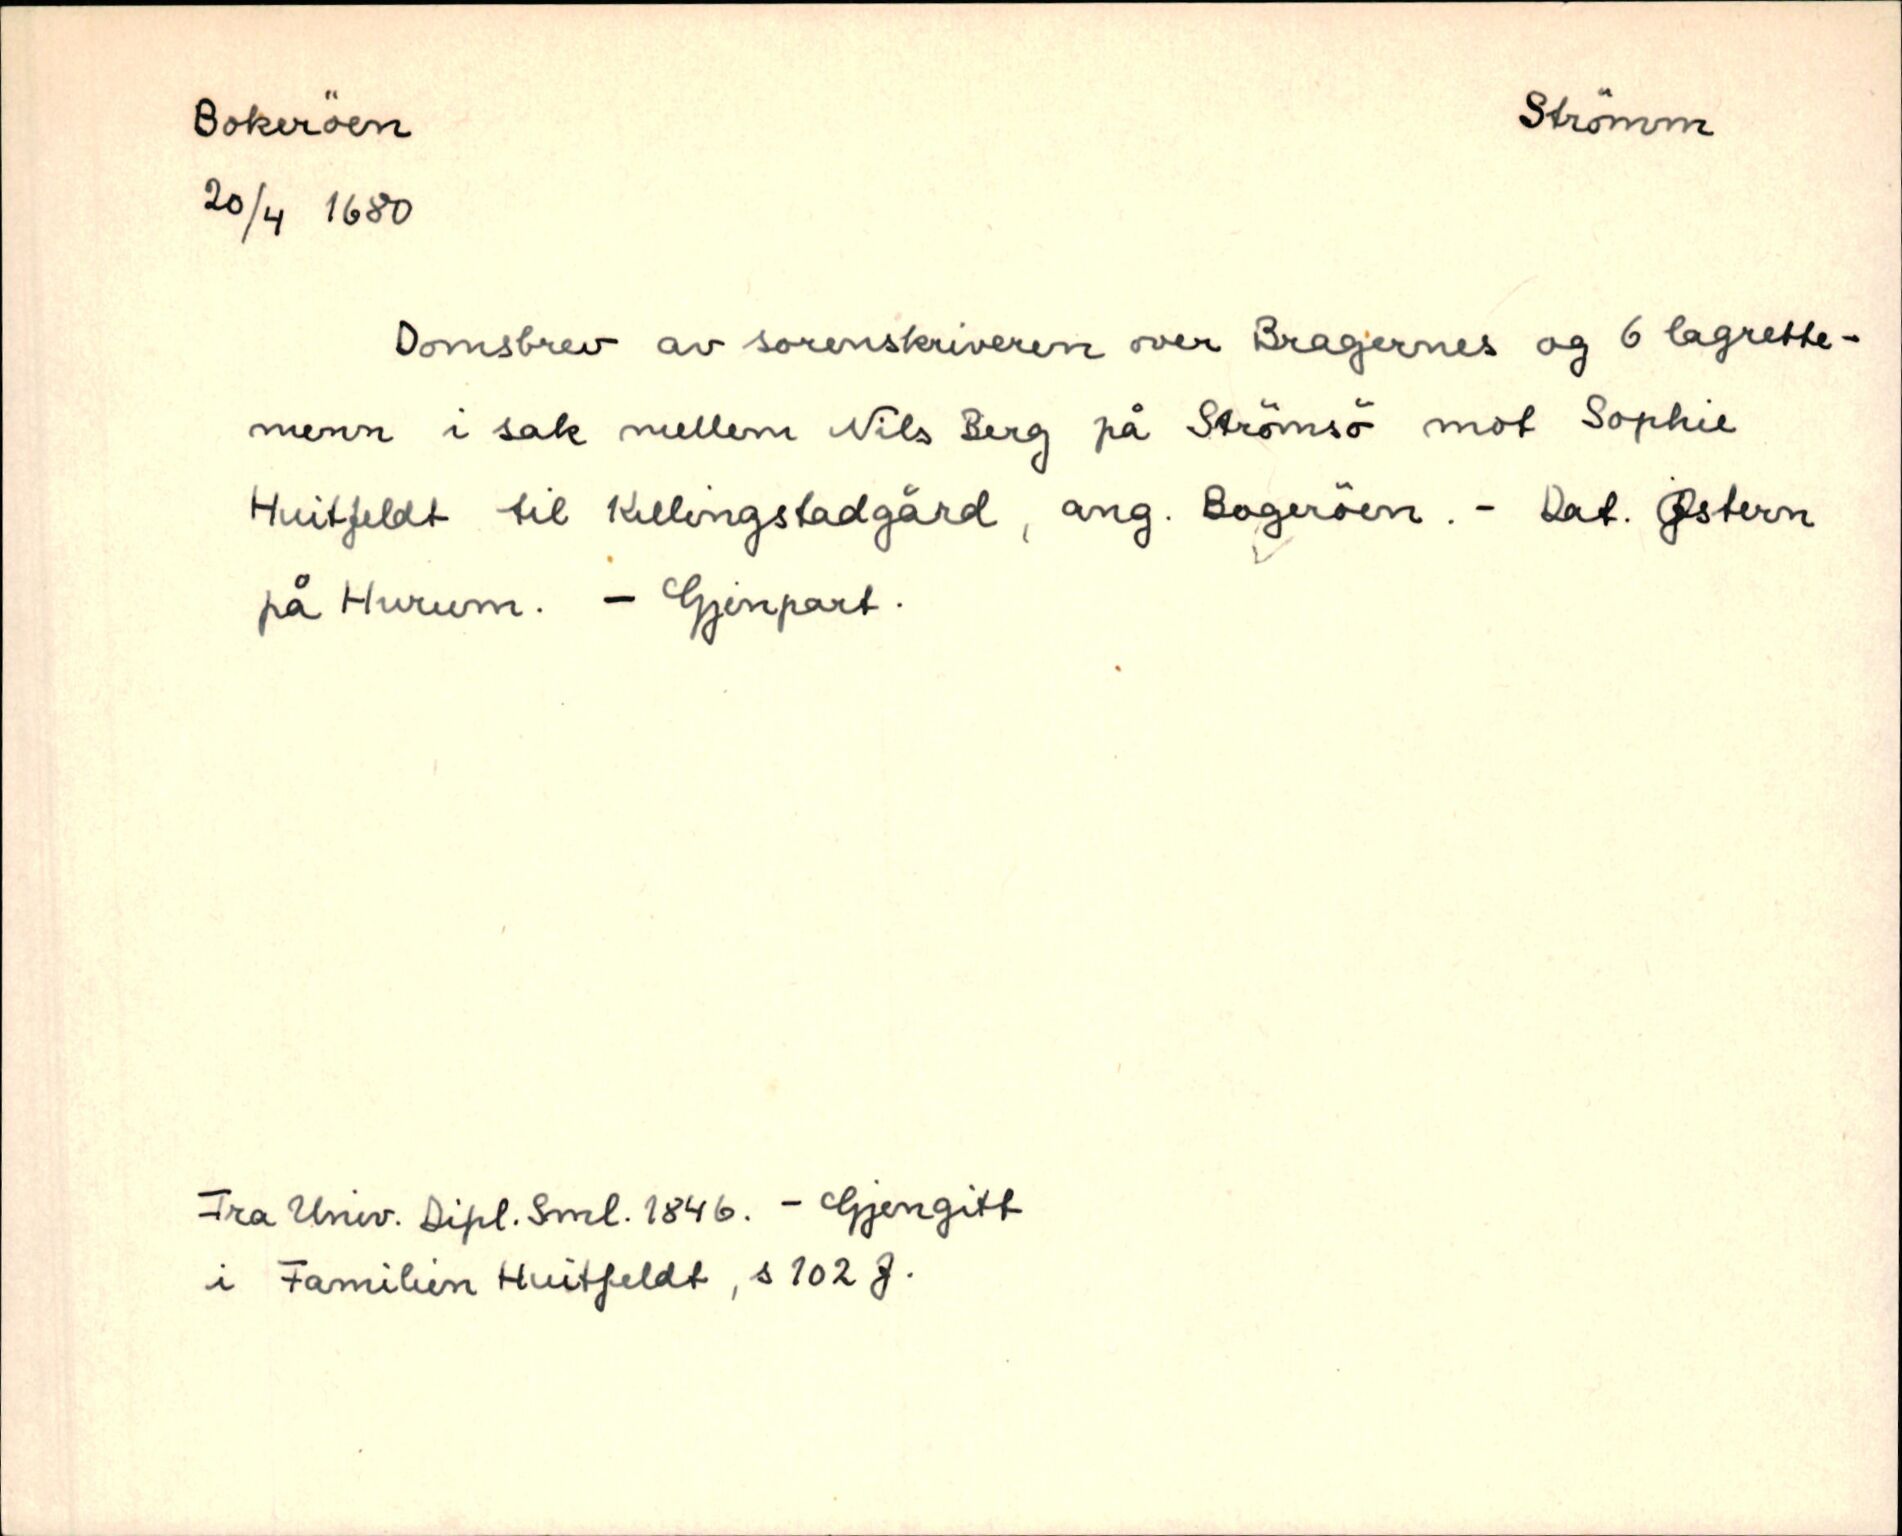 Bokeröen Strömm
20/4 1680
Domsbrev av sorenskriveren over Bragernes og 6 lagrette-
menn i sak mellem Nils Berg på Strömsö mot Sophie
Huitfeldt til Killingstadgård, ang. Bogeröen. - Dat. Østern
på Hurum. - Gjenpart.
Fra Univ. Dipl. Sml. 1846. - Gjengitt
i Familien Huitfeldt, s 102 f.